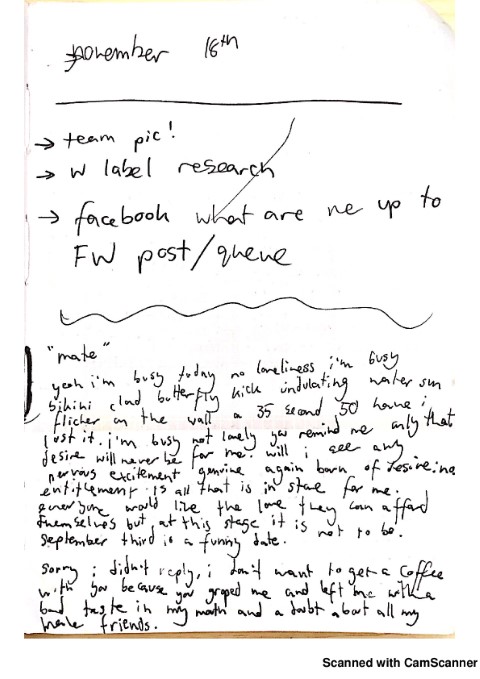 november 18th
→ team pic!
→ w label research
→ facebook what are we up to
FW post/queue
"mate"
yeah i'm busy today no loneliness i'm busy
bikini clad butterfly kick undulating water sun
flicker on the wall a 35 second 50 have i
lost it. i'm busy not lonely you remind me only that
desire will never be for me. will i see any
nervous excitement genuine again born of desire.
entitlement is all that is in store for me.
everyone would like the love they can afford
themselves but at this stage it is not to be.
September third is a funny date.
sorry i didn't reply, i don't want to get a coffee
with you because you groped me and left me with a
bad taste in my mouth and a doubt about all my
male friends.
Scanned with CamScanner